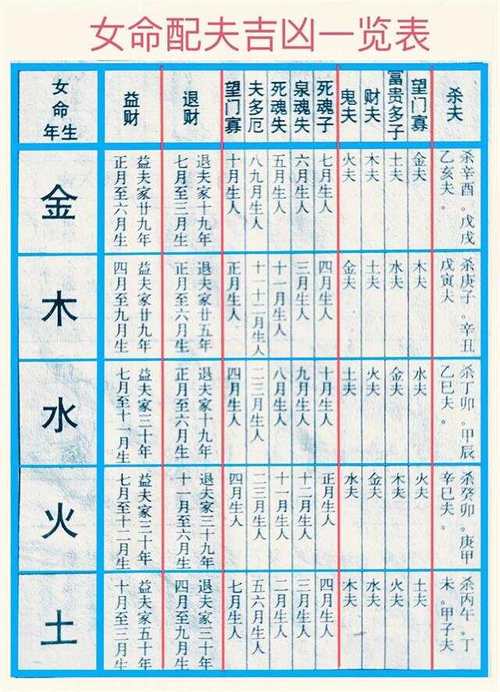 女命配夫吉凶一览表
女命年生
益财
退财
望门寡
夫多厄
死魂失
泉魂失
死魂子
鬼夫
财夫
富贵多子
望门寡
杀夫
金
益夫家廿九年
正月至六月生
退夫家十九年
七月至二月生
十月生人
八九月生人
五月生人
六月生人
七月生人
火夫
木夫
土夫
金夫
杀辛酉。戊戌
乙亥夫。
木
益夫家廿九年
四月至九月生
退夫家廿五年
正月至六月生
正月生人
十一十二月生人
十一月生人
三月生人
四月生人
金夫
土夫
水夫
木夫
杀庚子。辛丑
戊寅夫。
水
益夫家三十年
七月至十一月生
退夫家十九年
正月至六月生
四月生人
二三月生人
八月生人
九月生人
十月生人
土夫
火夫
金夫
水夫
杀丁卯。甲辰
乙巳夫。
火
益夫家三十年
七月至十二月生
退夫家三十九年
十一月至六月生
四月生人
二三月生人
十一月生人
十二月生人
正月生人
水夫
金夫
木夫
火夫
杀癸卯。庚甲
辛巳夫。
土
益夫家五十年
十月至三月生
退夫家三十年
四月至九月生
七月生人
五六月生人
二月生人
三月生人
四月生人
木夫
水夫
火夫
土夫
杀丙午。丁
未。甲子夫